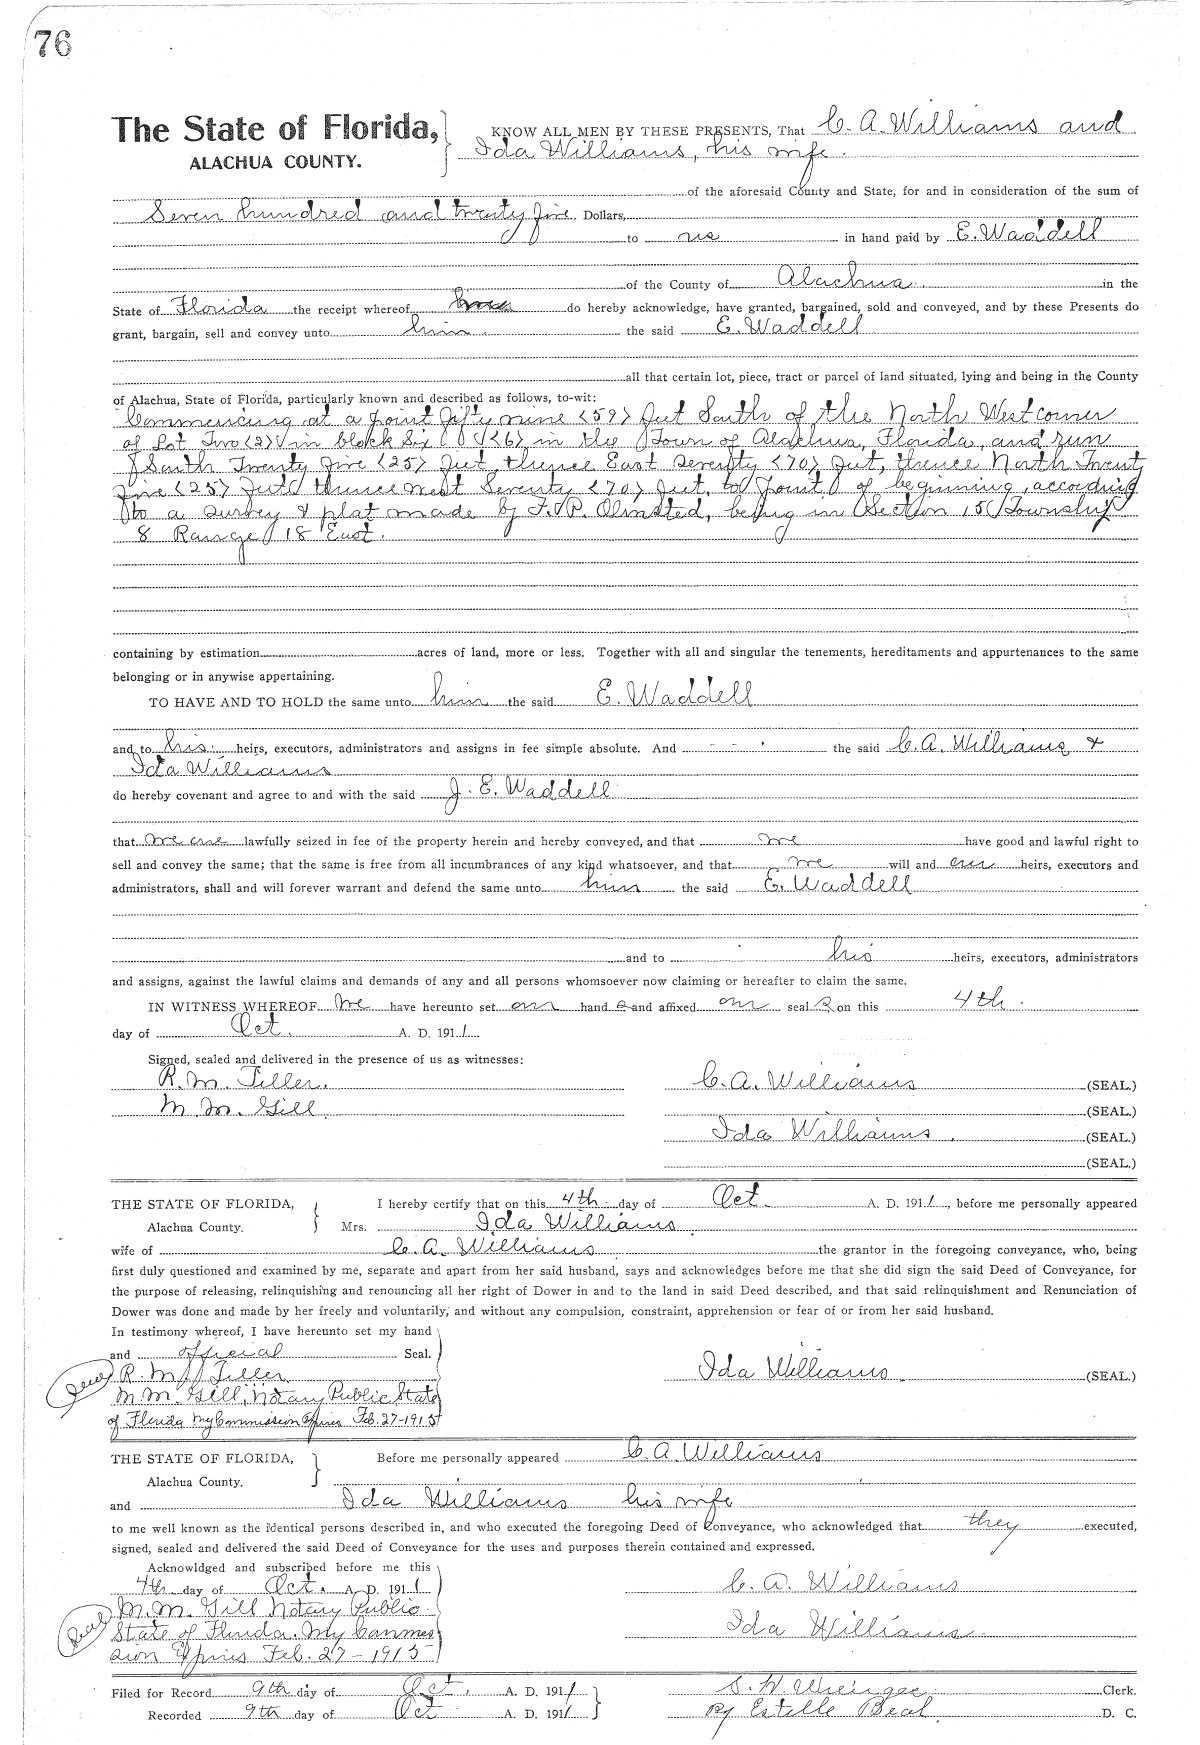 76
The State of Florida, KNOW ALL MEN BY THESE PRESENTS, That C. A. Williams and
ALACHUA COUNTY. Ida Williams, his wife.
of the aforesaid County and State, for and in consideration of the sum of
Seven hundred and twenty five Dollars,
to us in hand paid by E. Waddell
of the County of Alachua in the
State of Florida the receipt whereof do hereby acknowledge, have granted, bargained, sold and conveyed, and by these Presents do
grant, bargain, sell and convey unto him the said E. Waddell
all that certain lot, piece, tract or parcel of land situated, lying and being in the County
of Alachua, State of Florida, particularly known and described as follows, to-wit:
Commencing at a point fifty nine <59> feet South of the North West corner
of Lot Two <2> in block Six <6> in the Town of Alachua, Florida, and run
South Twenty five <25> feet, thence East seventy <70> feet, thence North Twenty
five <25> feet thence west Seventy <70> feet, to point of beginning, according
to a survey & plat made by F. P. Olmsted, being in Section 15 Township
8 Range 18 East.
containing by estimation acres of land, more or less. Together with all and singular the tenements, hereditaments and appurtenances to the same
belonging or in anywise appertaining.
TO HAVE AND TO HOLD the same unto him the said E. Waddell
and to his heirs, executors, administrators and assigns in fee simple absolute. And - - - the said C. A. Williams &
Ida Williams
do hereby covenant and agree to and with the said J. E. Waddell
that we are lawfully seized in fee of the property herein and hereby conveyed, and that we have good and lawful right to
sell and convey the same; that the same is free from all incumbrances of any kind whatsoever, and that we will and our heirs, executors and
administrators, shall and will forever warrant and defend the same unto him the said E. Waddell
and to his heirs, executors, administrators
and assigns, against the lawful claims and demands of any and all persons whomsoever now claiming or hereafter to claim the same.
IN WITNESS WHEREOF we have hereunto set our hand s and affixed our seal s on this 4th.
day of Oct. A. D. 1911
Signed, sealed and delivered in the presence of us as witnesses:
R. M. Tiller. C. A. Williams (SEAL.)
M. M. Gill. (SEAL.)
Ida Williams. (SEAL.)
(SEAL.)
THE STATE OF FLORIDA, I hereby certify that on this 4th day of Oct. A. D. 1911, before me personally appeared
Alachua County. Mrs. Ida Williams
wife of C. A. Williams the grantor in the foregoing conveyance, who, being
first duly questioned and examined by me, separate and apart from her said husband, says and acknowledges before me that she did sign the said Deed of Conveyance, for
the purpose of releasing, relinquishing and renouncing all her right of Dower in and to the land in said Deed described, and that said relinquishment and Renunciation of
Dower was done and made by her freely and voluntarily, and without any compulsion, constraint, apprehension or fear of or from her said husband.
In testimony whereof, I have hereunto set my hand
and official Seal.
Seal R. M. Tiller Ida Williams (SEAL.)
M. M. Gill, Notary Public State
of Florida My Commission Expires Feb. 27-1915
THE STATE OF FLORIDA, Before me personally appeared C. A. Williams
Alachua County.
and Ida Williams his wife
to me well known as the identical persons described in, and who executed the foregoing Deed of Conveyance, who acknowledged that they executed,
signed, sealed and delivered the said Deed of Conveyance for the uses and purposes therein contained and expressed.
Acknowldged and subscribed before me this
4th day of Oct. A. D. 1911 C. A. Williams
Seal M. M. Gill Notary Public
State of Florida. My Commis Ida Williams
sion Expires Feb. 27-1915
Filed for Record 9th day of Oct. A. D. 1911 S. H. Wienges Clerk.
Recorded 9th day of Oct A. D. 1911 By Estelle Beal. D. C.